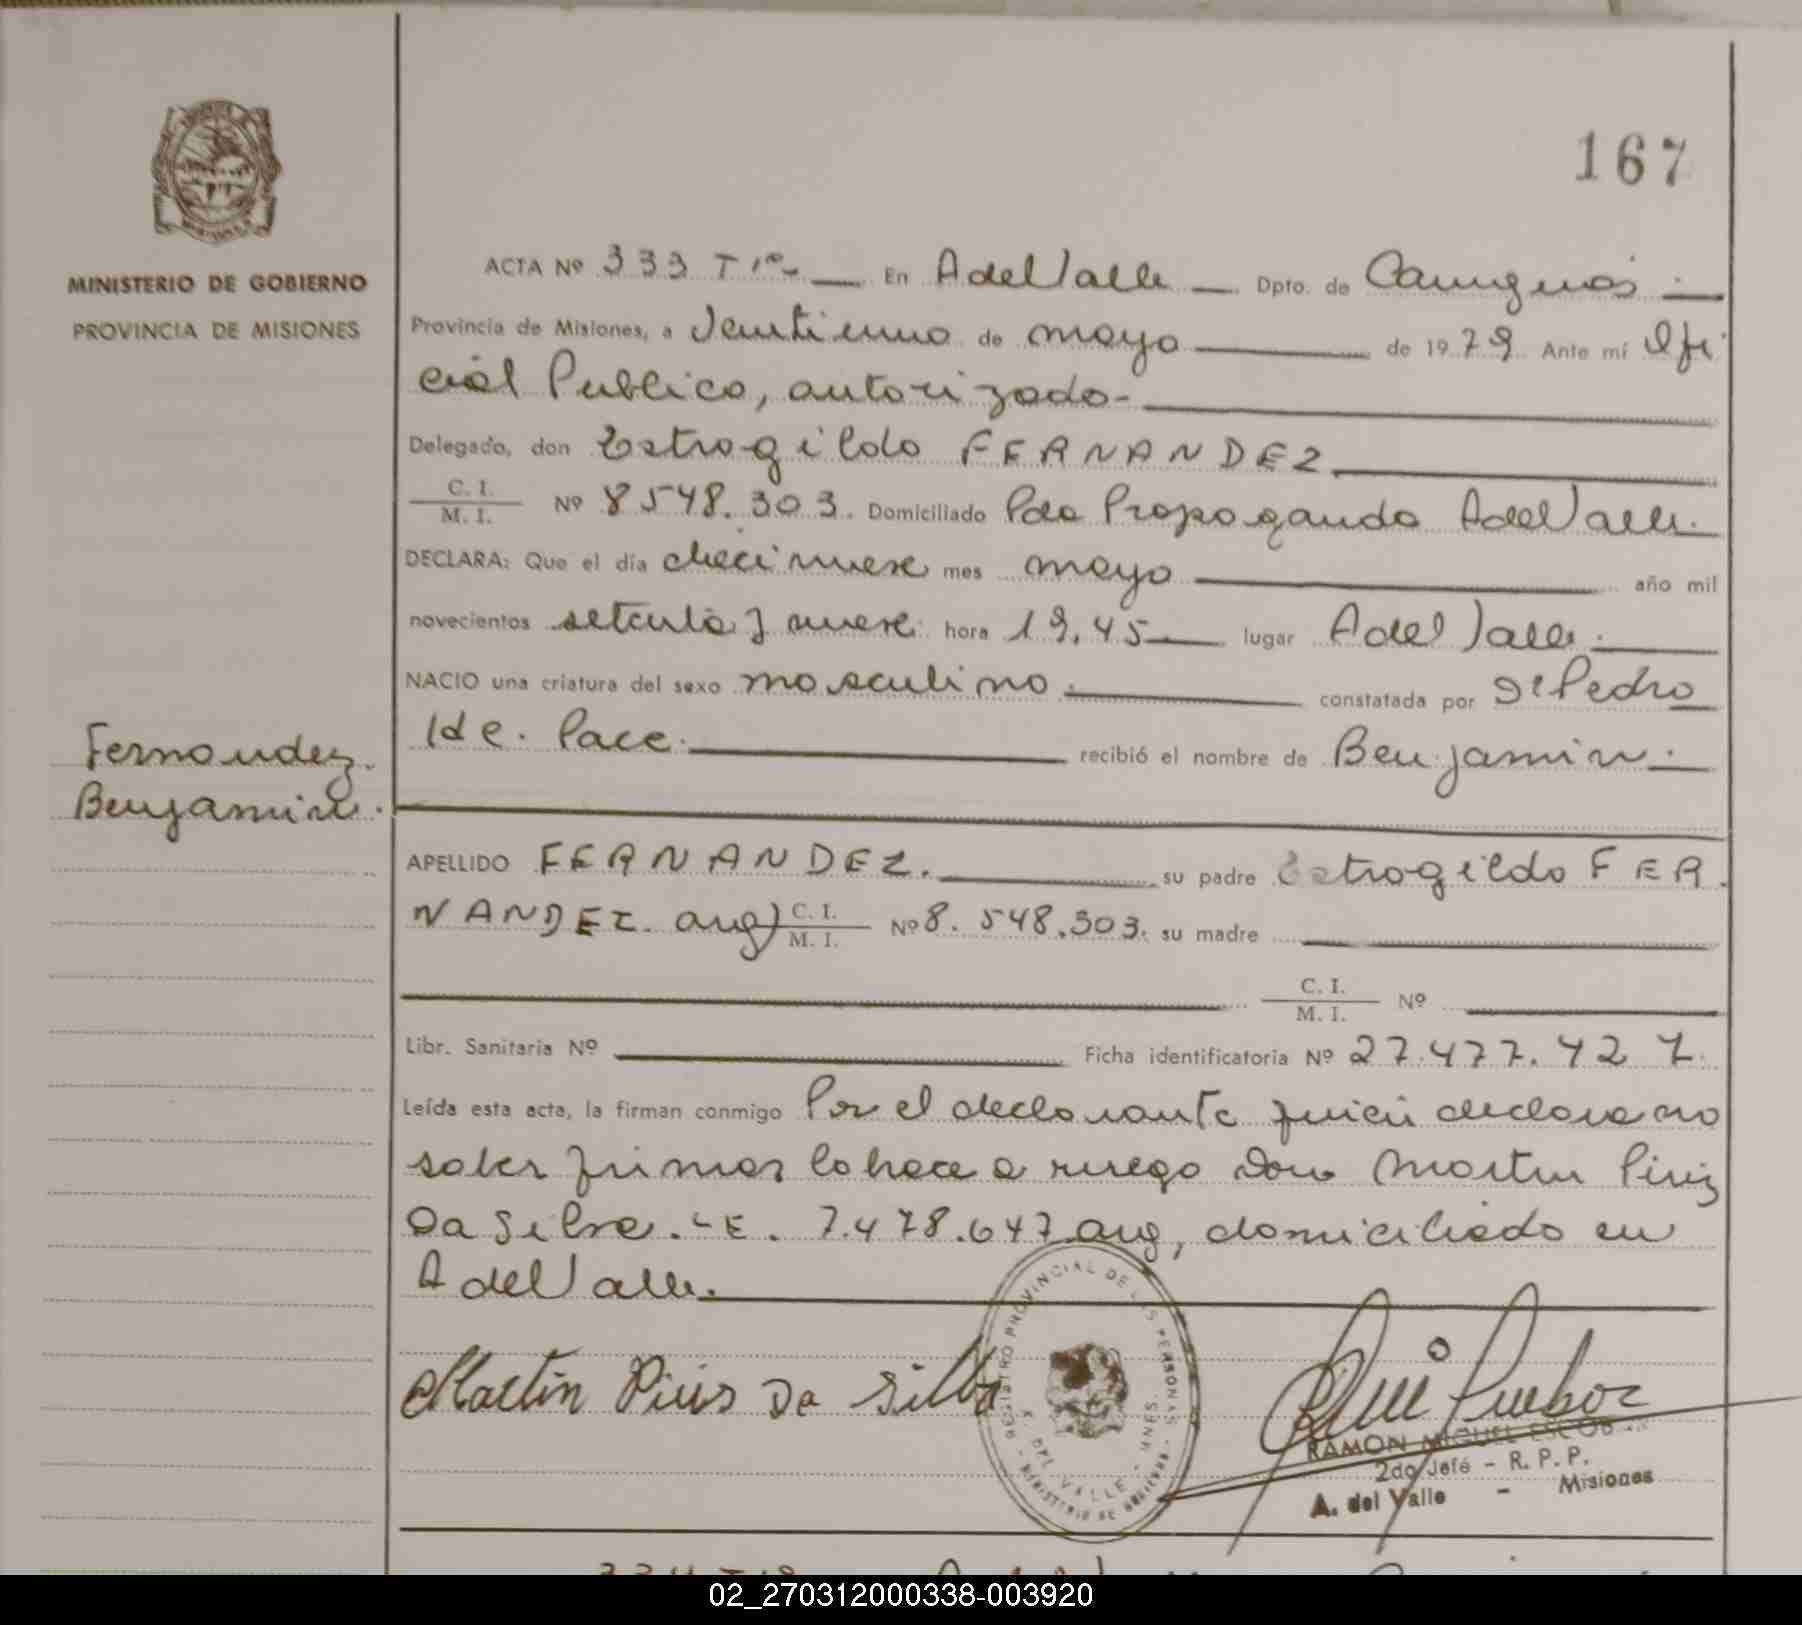 167
MINISTERIO DE GOBIERNO
PROVINCIA DE MISIONES
ACTA Nº 333 T 1º- En A del Valle Dpto. de Cainguas
Provincia de Misiones, a Veintiuno de mayo de 1979 Ante mí Ofi
cial Publico, autorizado-
Delegado, don Estrogildo FERNANDEZ
C. I.
M. I. Nº 8548.303. Domiciliado Pdo Propaganda A del Valle.
DECLARA: Que el día diecinueve mes mayo año mil
novecientos setenta y nueve hora 19,45 lugar A del Valle.
NACIO una criatura del sexo masculino. constatada por Dr Pedro
Ide. Pace. recibió el nombre de Benjamin.
Fernandez.
Benjamin.
APELLIDO FERNANDEZ. su padre Estrogildo FER
NANDEZ. arg) C. I.
M. I. Nº 8.548.303. su madre
C. I.
M. I. Nº
Libr. Sanitaria Nº Ficha identificatoria Nº 27.477.427.
Leída esta acta, la firman conmigo Por el declarante quien declara no
saber firmar lo hace a ruego Don Martin Piriz
Da Silva. LE. 7.478.647 arg, domiciliado en
A del Valle.
Martin Piris Da Silba
REGISTRO PROVINCIAL DE LAS PERSONAS
A DEL VALLE - MNES.
MINISTERIO DE GOBIERNO
RAMON MIGUEL ESCOB
2do Jefe - R. P. P.
A. del Valle - Misiones
334 T 1º
02_270312000338-003920